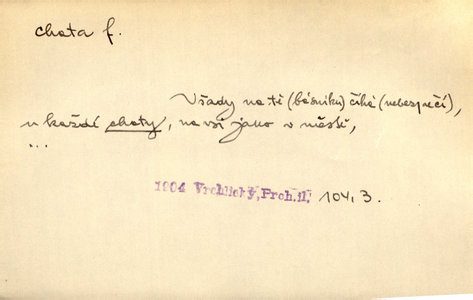 chata f.
Všady na tě (básníku) číhá (nebezpečí),
u každé chaty, na vsi jako v městě,
...
1904 Vrchlický, Proh. il. 104, 3.